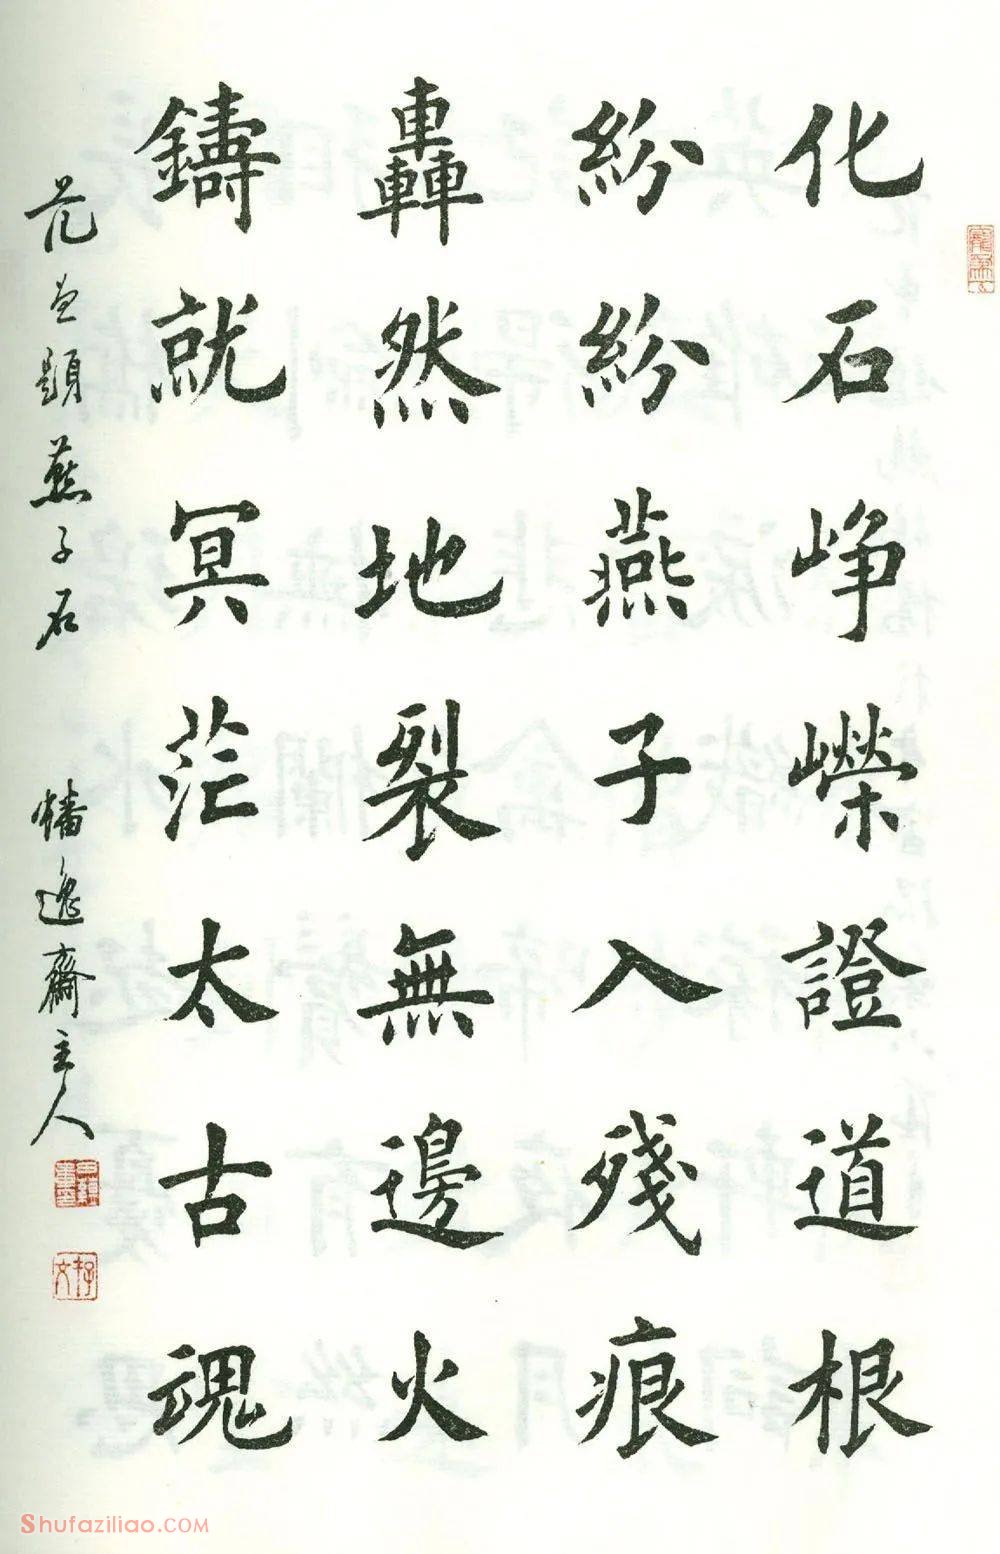 化石崢嶸證道根
紛紛燕子入殘痕
轟然地裂無邊火
鑄就冥茫太古魂
范曾題燕子石 蟠逸齋主人
Shufaziliao.COM